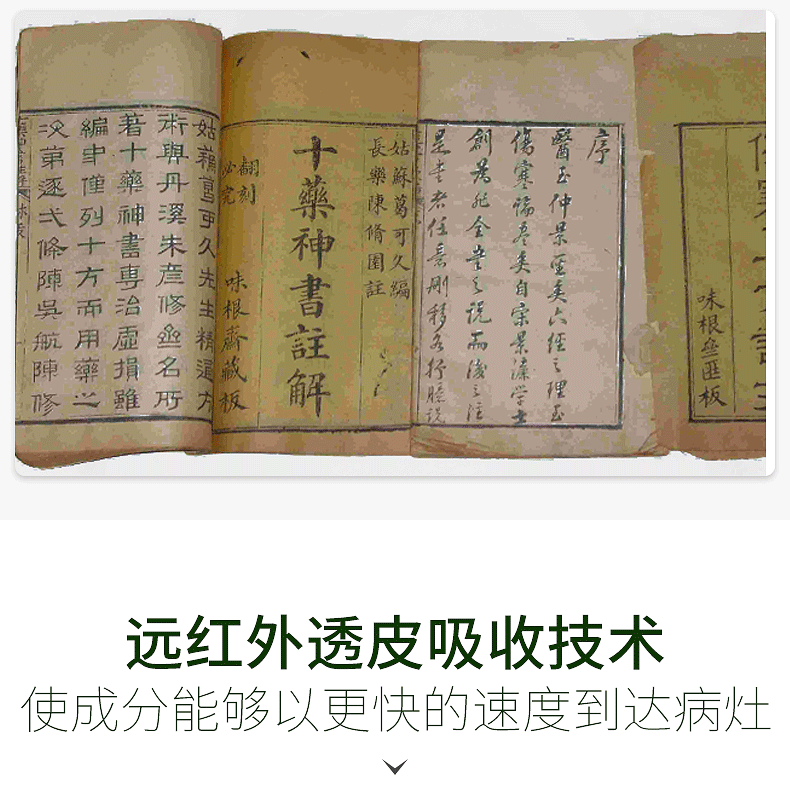 味根
匯板
序
醫王仲景聖矣六經之理至
傷寒論盡矣自宋景濂学士
創為非全書之說而後之注
是書者任意刪移各行臆說
姑蘇葛可久編
長樂陳脩園註
十藥神書註解
翻刻
必究
味根齋藏板
姑蘇葛可久先生精通方
術與丹溪朱彦修齊名所
著十藥神書專治虛損雖
編中僅列十方而用藥之
次第逐弌條陳吳航陳修
远红外透皮吸收技术
使成分能够以更快的速度到达病灶